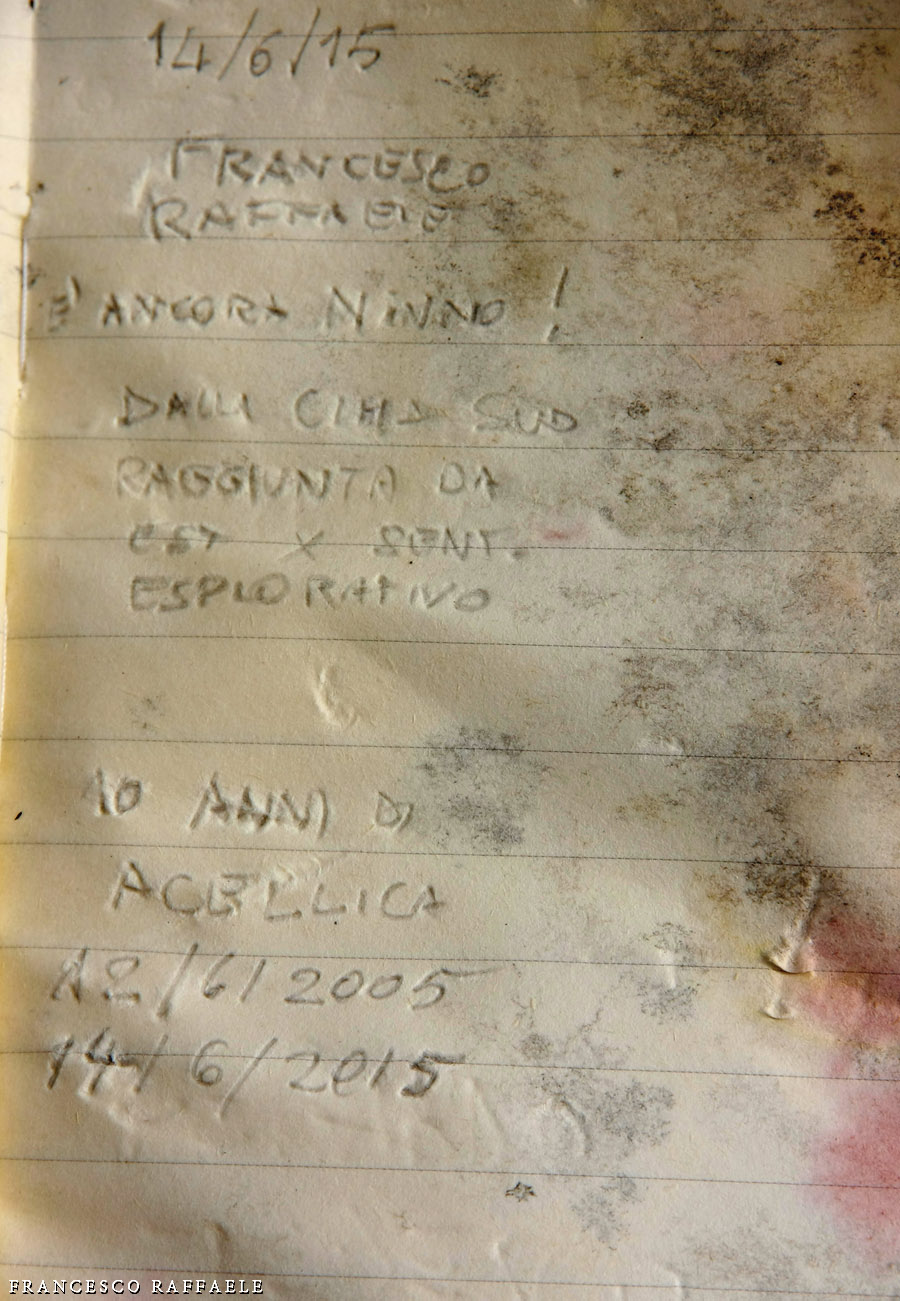 14/6/15
FRANCESCO
RAFFAELE
E' ANCORA NINNO !
DALLA CIMA SUD
RAGGIUNTA DA
EST X SENT.
ESPLORATIVO
10 ANNI DI
ACELLICA
12/6/2005
14/6/2015
FRANCESCO RAFFAELE